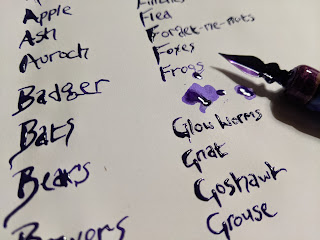 Apple
Ash
Auroch
Badger
Bats
Bears
Flea
Forget-me-nots
Foxes
Frogs
Glow Worms
Gnat
Goshawk
Grouse